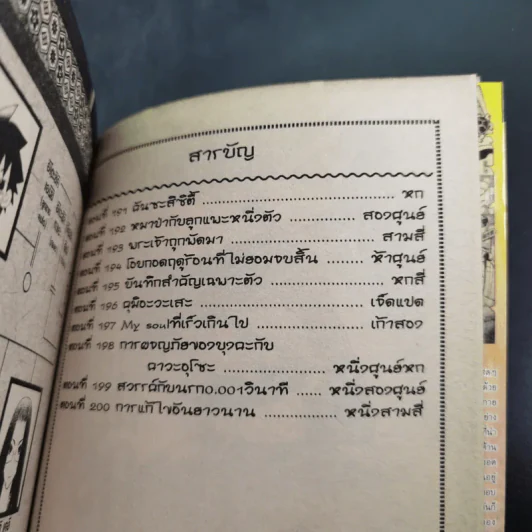 สารบัญ
ตอนที่ 191 ฉันซะสิซิตี้ .......... หก
ตอนที่ 192 หมาป่ากับลูกแพะหนึ่งตัว .......... สองศูนย์
ตอนที่ 193 พระเจ้าถูกพัดมา .......... สามสี่
ตอนที่ 194 โอบกอดฤดูร้อนที่ไม่ยอมจบสิ้น .......... ห้าศูนย์
ตอนที่ 195 บันทึกสำคัญเฉพาะตัว .......... หกสี่
ตอนที่ 196 คุมิอะวะเสะ .......... เจ็ดแปด
ตอนที่ 197 My soulที่เร็วเกินไป .......... เก้าสอง
ตอนที่ 198 การผจญภัยของบุงคะกับ
คาวะอุโซะ .......... หนึ่งศูนย์หก
ตอนที่ 199 สวรรค์กับนรก0.001วินาที ...... หนึ่งสองศูนย์
ตอนที่ 200 การแก้ไขอันยาวนาน .......... หนึ่งสามสี่